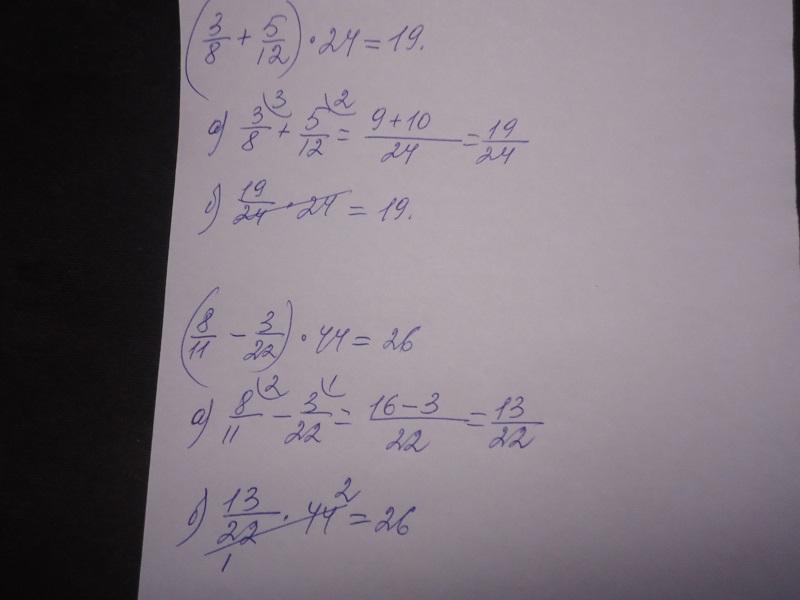 (3/8 + 5/12) · 24 = 19.
а) 3/8 (3 + 5/12 (2 = (9+10)/24 = 19/24
б) 19/24 · 24 = 19.
(8/11 − 3/22) · 44 = 26
а) 8/11 (2 − 3/22 (1 = (16−3)/22 = 13/22
б) 13/22 1 · 44 2 = 26